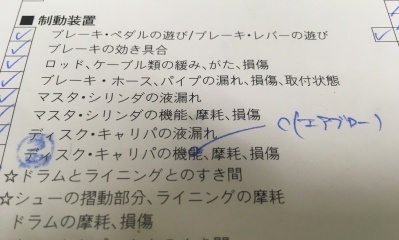 ■ 制動装置
ブレーキ・ペダルの遊び/ブレーキ・レバーの遊び
ブレーキの効き具合
ロッド、ケーブル類の緩み、がた、損傷
ブレーキ・ホース、パイプの漏れ、損傷、取付状態
マスタ・シリンダの液漏れ
マスタ・シリンダの機能、摩耗、損傷
ディスク・キャリパの液漏れ
ディスク・キャリパの機能、摩耗、損傷
(エアブロー)
☆ドラムとライニングとのすき間
☆シューの摺動部分、ライニングの摩耗
ドラムの摩耗、損傷